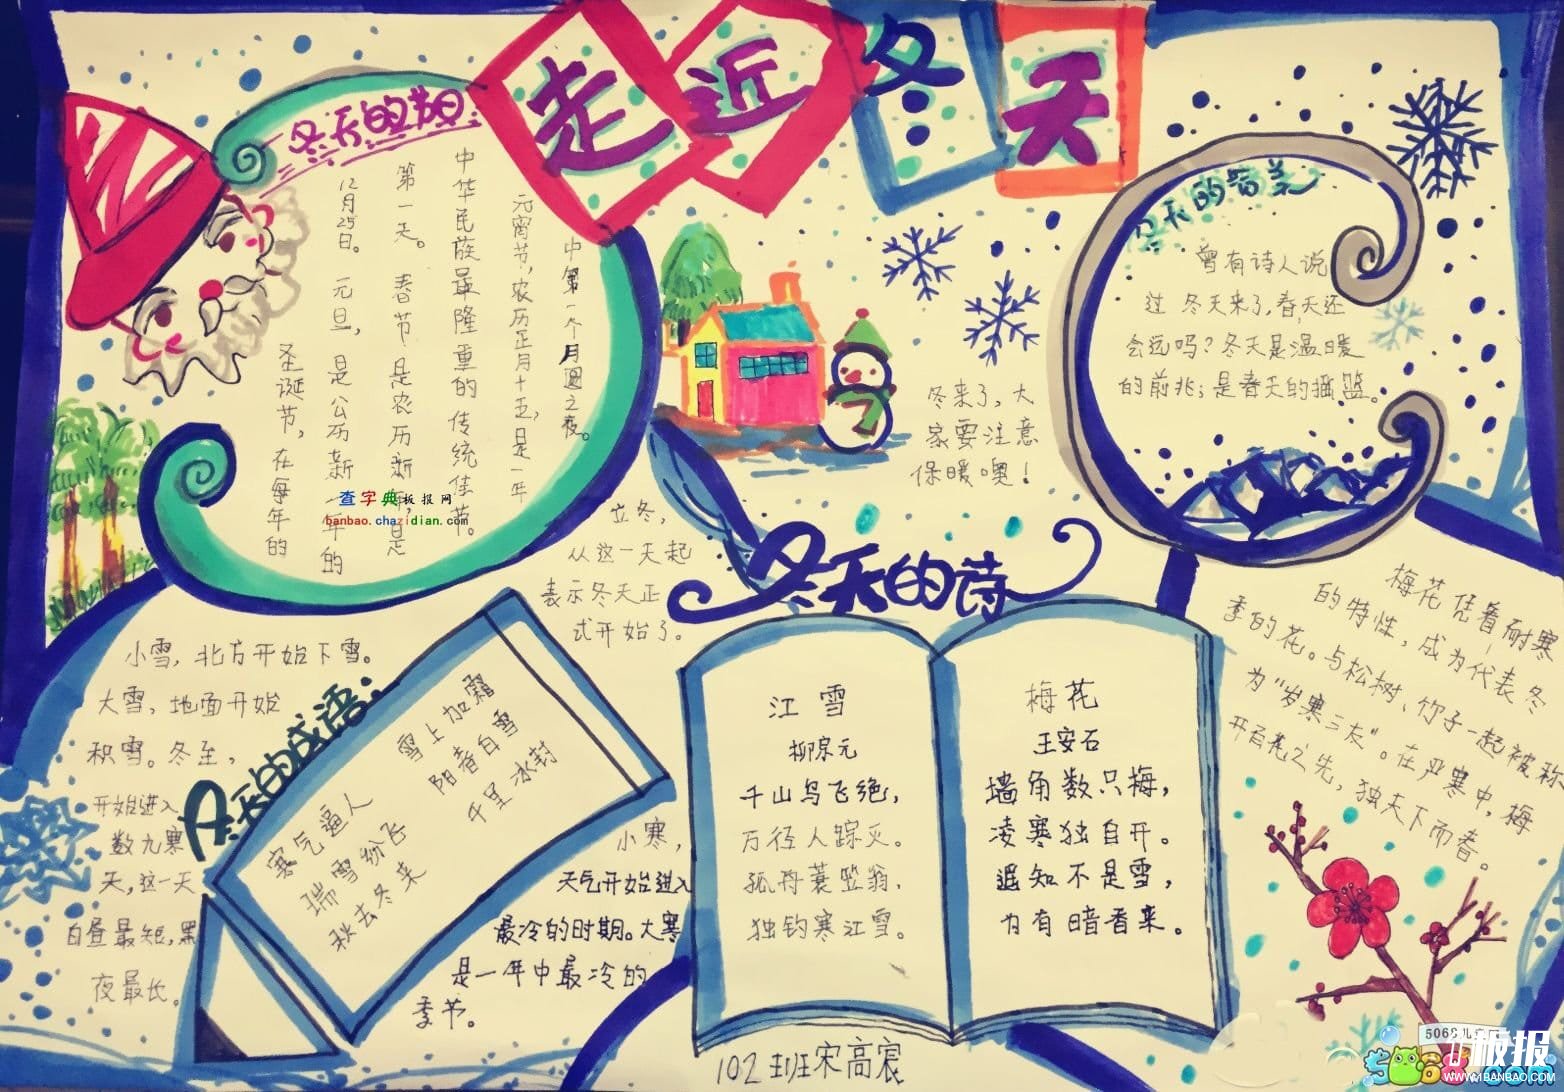 走近冬天
冬天的节日
圣诞节，在每年的
12月25日。元旦，是公历新年的
第一天。春节是农历新年，是
中华民族最隆重的传统佳节。
元宵节，农历正月十五，是一年
中第一个月圆之夜。
查字典板报网
banbao.chazidian.com
冬来了，大
家要注意
保暖噢！
冬天的
曾有诗人说
过 冬天来了，春天还
会远吗？冬天是温暖
的前兆；是春天的摇篮。
立冬，
从这一天起
表示冬天正
式开始了。
小雪，北方开始下雪。
大雪，地面开始
积雪。冬至，
开始进入
数九寒
天，这一天
白昼最短，黑
夜最长。
冬天的成语：
雪上加霜
阳春白雪
千里冰封
寒气逼人
瑞雪纷飞
秋去冬来
小寒，
天气开始进入
最冷的时期。大寒
是一年中最冷的
季节。
冬天的诗
江雪
柳宗元
千山鸟飞绝，
万径人踪灭。
孤舟蓑笠翁，
独钓寒江雪。
梅花
王安石
墙角数只梅，
凌寒独自开。
遥知不是雪，
为有暗香来。
梅花凭着耐寒
的特性，成为代表冬
季的花。与松树、竹子一起被称
为“岁寒三友”。在严寒中，梅
开百花之先，独天下而春。
102班宋高宸
5068儿童网
5068.com
板报
WWW.1BANBAO.COM